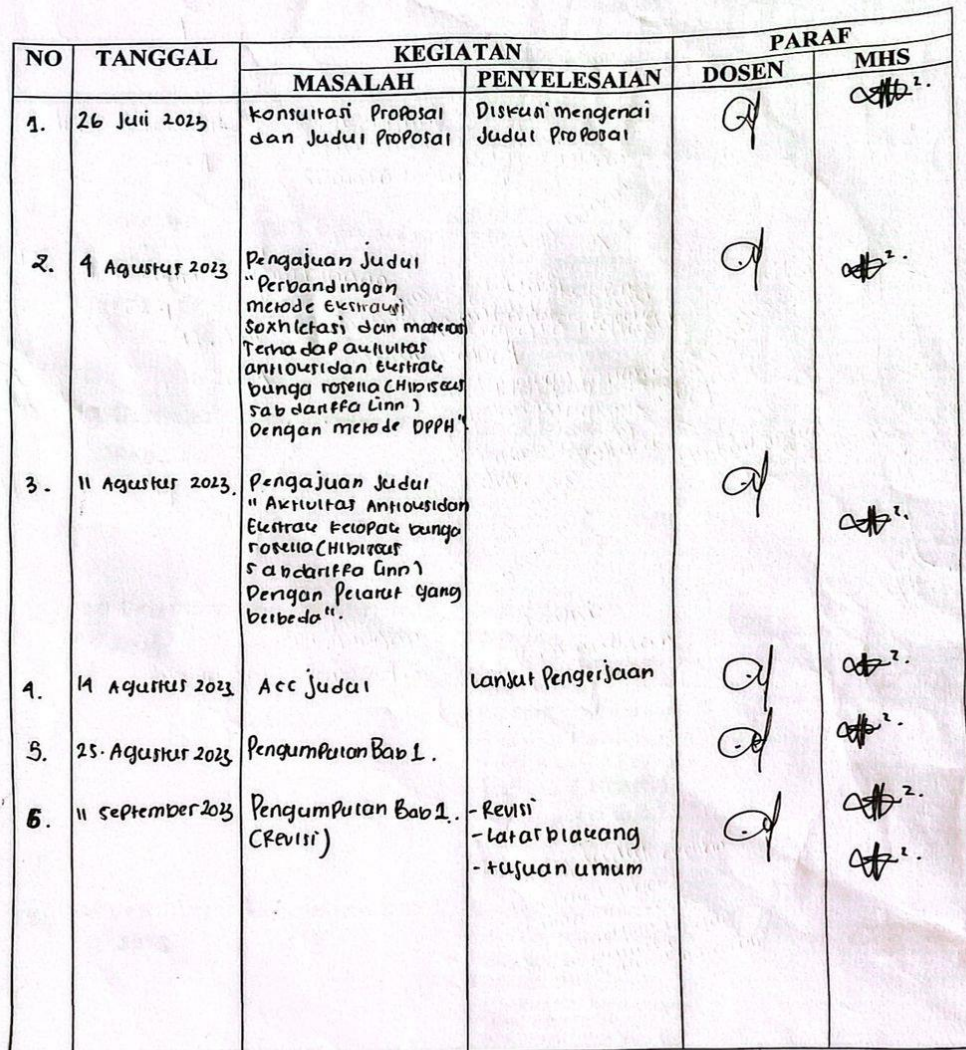 NO TANGGAL KEGIATAN PARAF
MASALAH PENYELESAIAN DOSEN MHS
1. 26 Juli 2023 Konsultasi Proposal Diskusi mengenai
dan Judul Proposal Judul Proposal
2. 4 Agustus 2023 Pengajuan Judul
"Perbandingan
metode Ekstraksi
Soxhletasi dan maserasi
Terhadap aktivitas
antioksidan Ekstrak
bunga rosella (Hibiscus
sabdariffa Linn)
Dengan metode DPPH"
3. 11 Agustus 2023. Pengajuan Judul
"Aktivitas Antioksidan
Ekstrak Kelopak bunga
rosella (Hibiscus
sabdariffa Linn)
Dengan Pelarut yang
berbeda".
4. 14 Agustus 2023 Acc judul Lanjut Pengerjaan
5. 25. Agustus 2023 Pengumpulan Bab 1.
6. 11 September 2023 Pengumpulan Bab 1. - Revisi
(Revisi) - Latar blakang
- tujuan umum